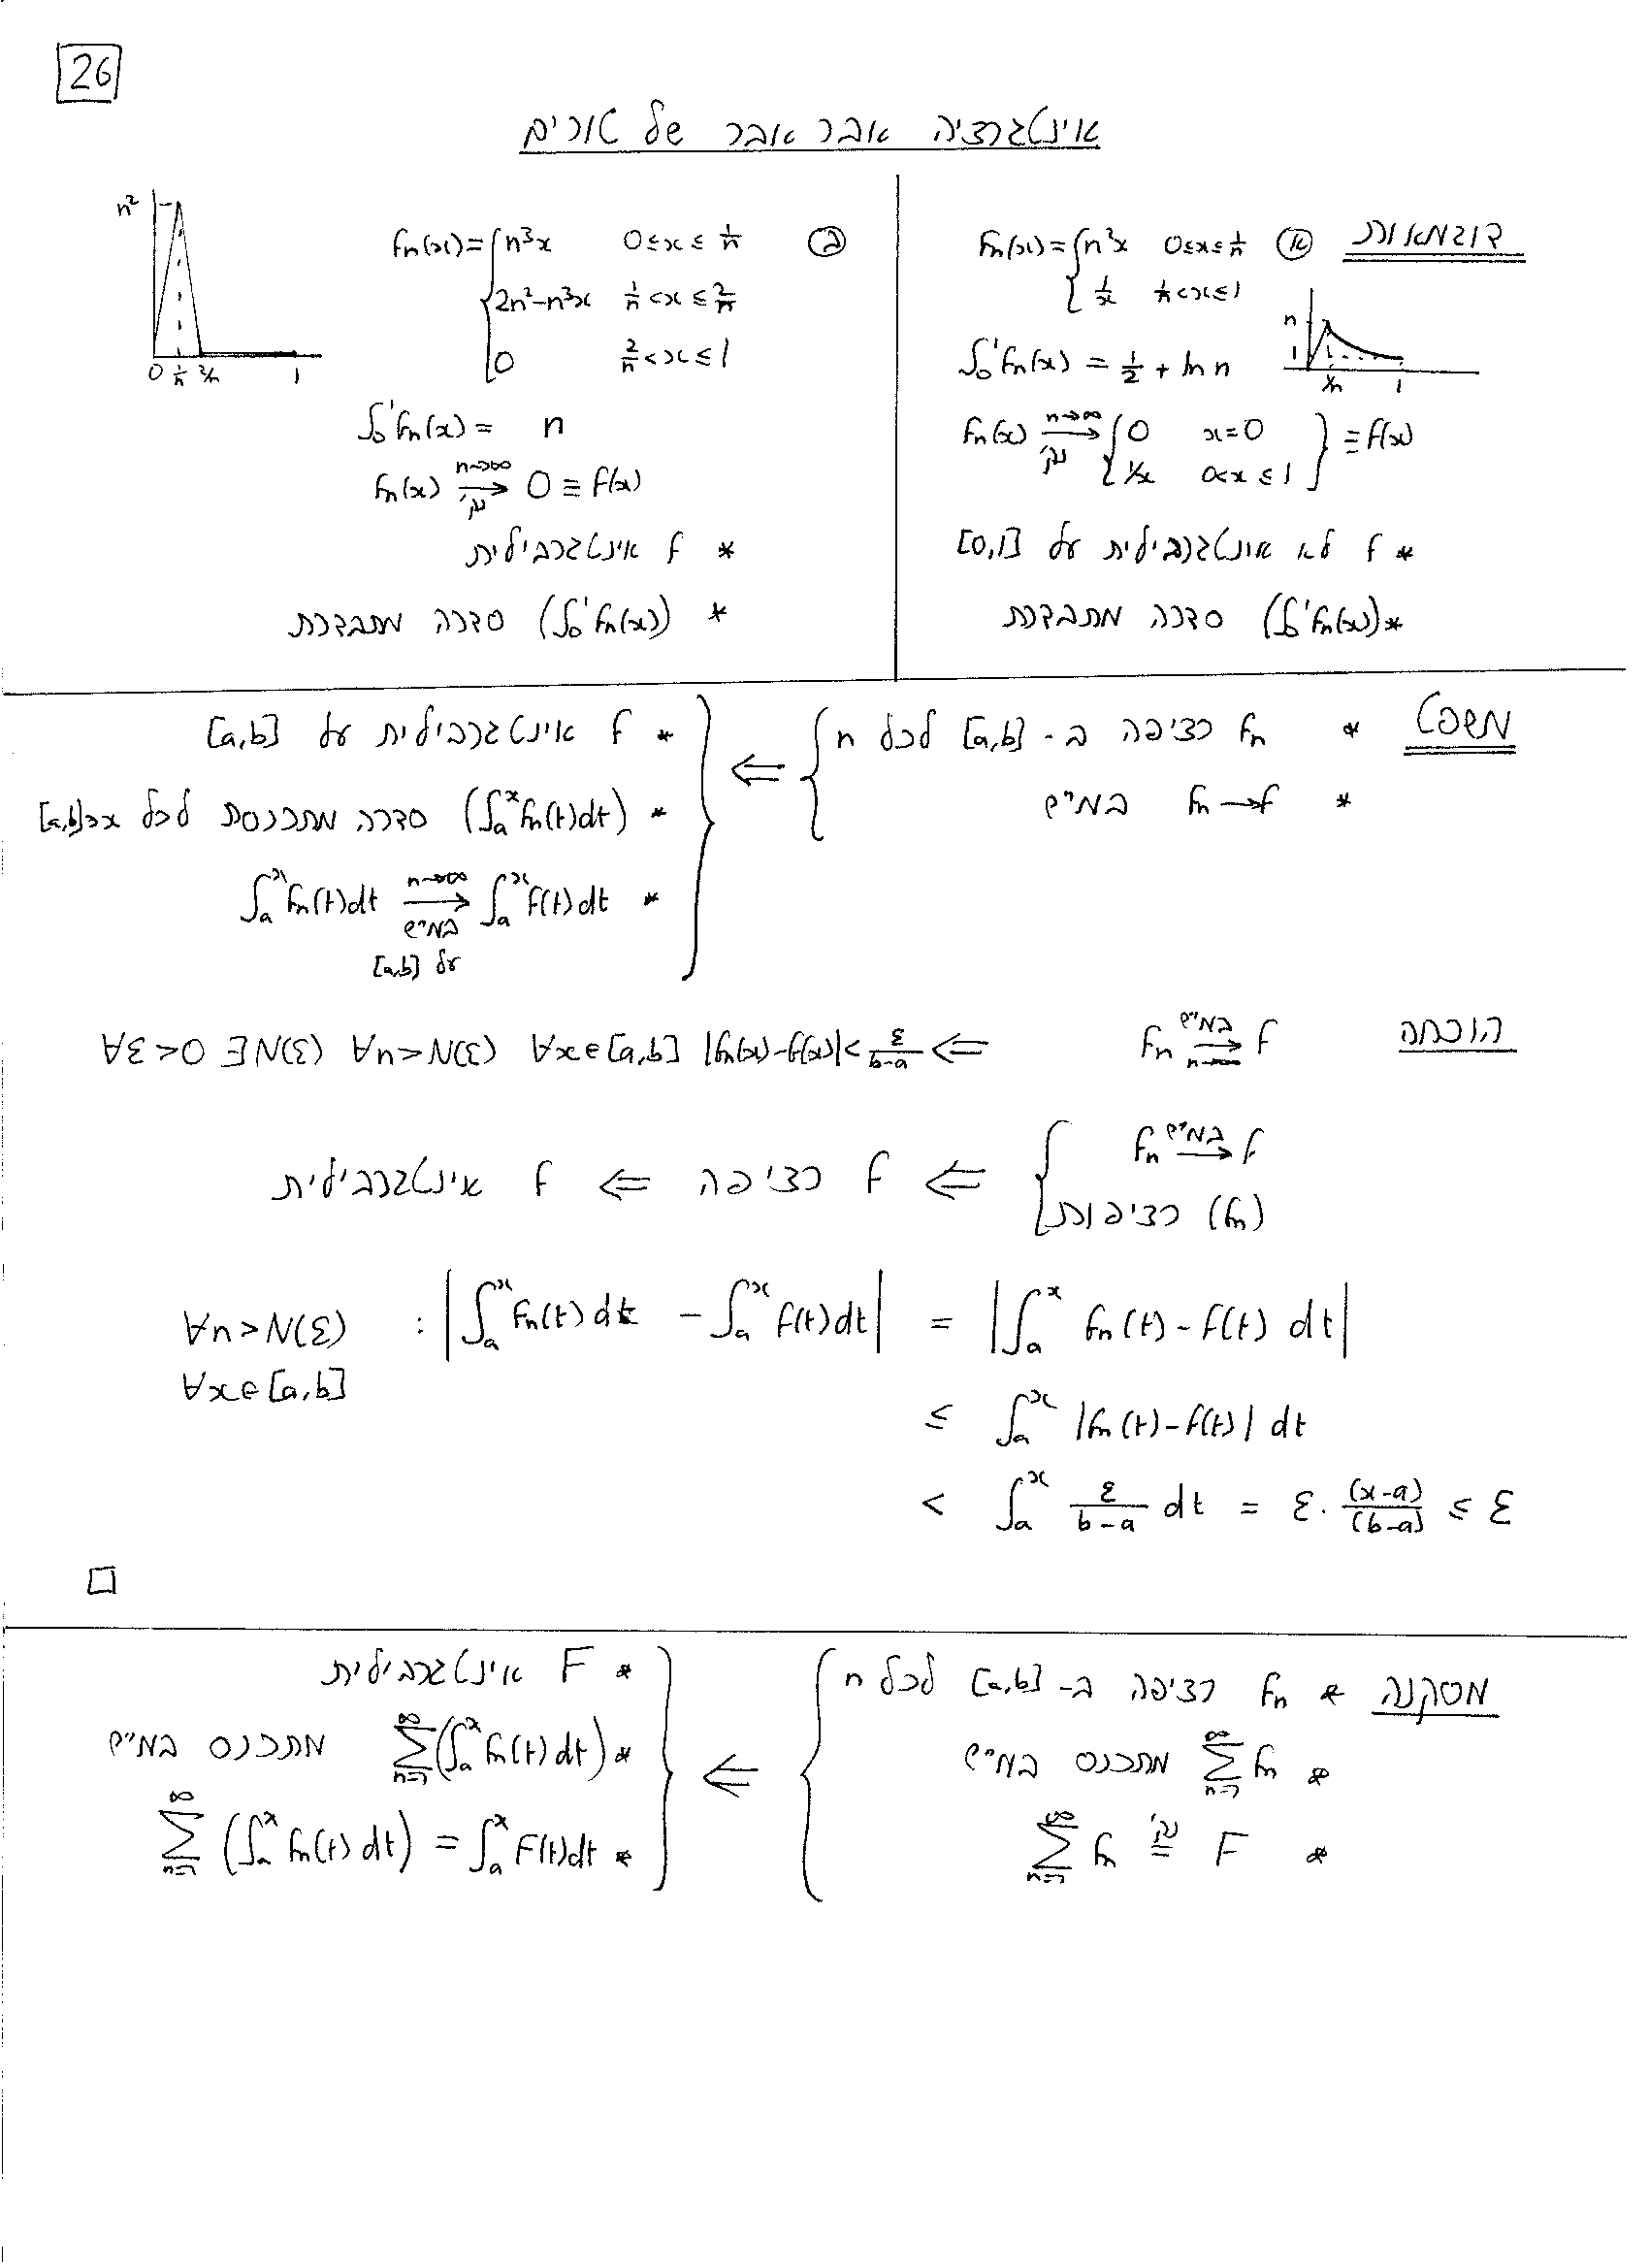 26
אינטגרציה אבר אבר של טורים
דוגמאות
(א) fn(x) = { n²x 0≤x≤1/n
1/x 1/n<x≤1
n
1
1/n 1
∫₀¹ fn(x) = 1/2 + ln n
fn(x) —n→∞, נק'→ { 0 x=0
1/x 0<x≤1 } ≡ f(x)
* f לא אינטגרבילית על [0,1]
* (∫₀¹ fn(x)) סדרה מתבדרת
(ב) fn(x) = { n³x 0≤x≤1/n
2n²-n³x 1/n<x≤2/n
0 2/n<x≤1
n²
0 1/n 2/n 1
∫₀¹ fn(x) = n
fn(x) —n→∞, נק'→ 0 ≡ f(x)
* f אינטגרבילית
* (∫₀¹ fn(x)) סדרה מתבדרת
משפט
* fn רציפה ב-[a,b] לכל n
* fn→f במ"ש
⇐
* f אינטגרבילית על [a,b]
* (∫ₐˣ fn(t)dt) סדרה מתכנסת לכל x∈[a,b]
* ∫ₐˣ fn(t)dt —n→∞, במ"ש→ ∫ₐˣ f(t)dt
על [a,b]
הוכחה
fn —במ"ש, n→∞→ f ⇐ ∀ε>0 ∃N(ε) ∀n>N(ε) ∀x∈[a,b] |fn(x)-f(x)|<ε/(b-a)
{ fn —במ"ש→ f
(fn) רציפות
⇐ f רציפה ⇐ f אינטגרבילית
∀n>N(ε) : |∫ₐˣ fn(t)dt - ∫ₐˣ f(t)dt| = |∫ₐˣ fn(t)-f(t) dt|
∀x∈[a,b]
≤ ∫ₐˣ |fn(t)-f(t)| dt
< ∫ₐˣ ε/(b-a) dt = ε·(x-a)/(b-a) ≤ ε
□
מסקנה
* fn רציפה ב-[a,b] לכל n
* ∑_{n=1}^∞ fn מתכנס במ"ש
* ∑_{n=1}^∞ fn =נק' F
⇐
* F אינטגרבילית
* ∑_{n=1}^∞ (∫ₐˣ fn(t)dt) מתכנס במ"ש
* ∑_{n=1}^∞ (∫ₐˣ fn(t)dt) = ∫ₐˣ F(t)dt